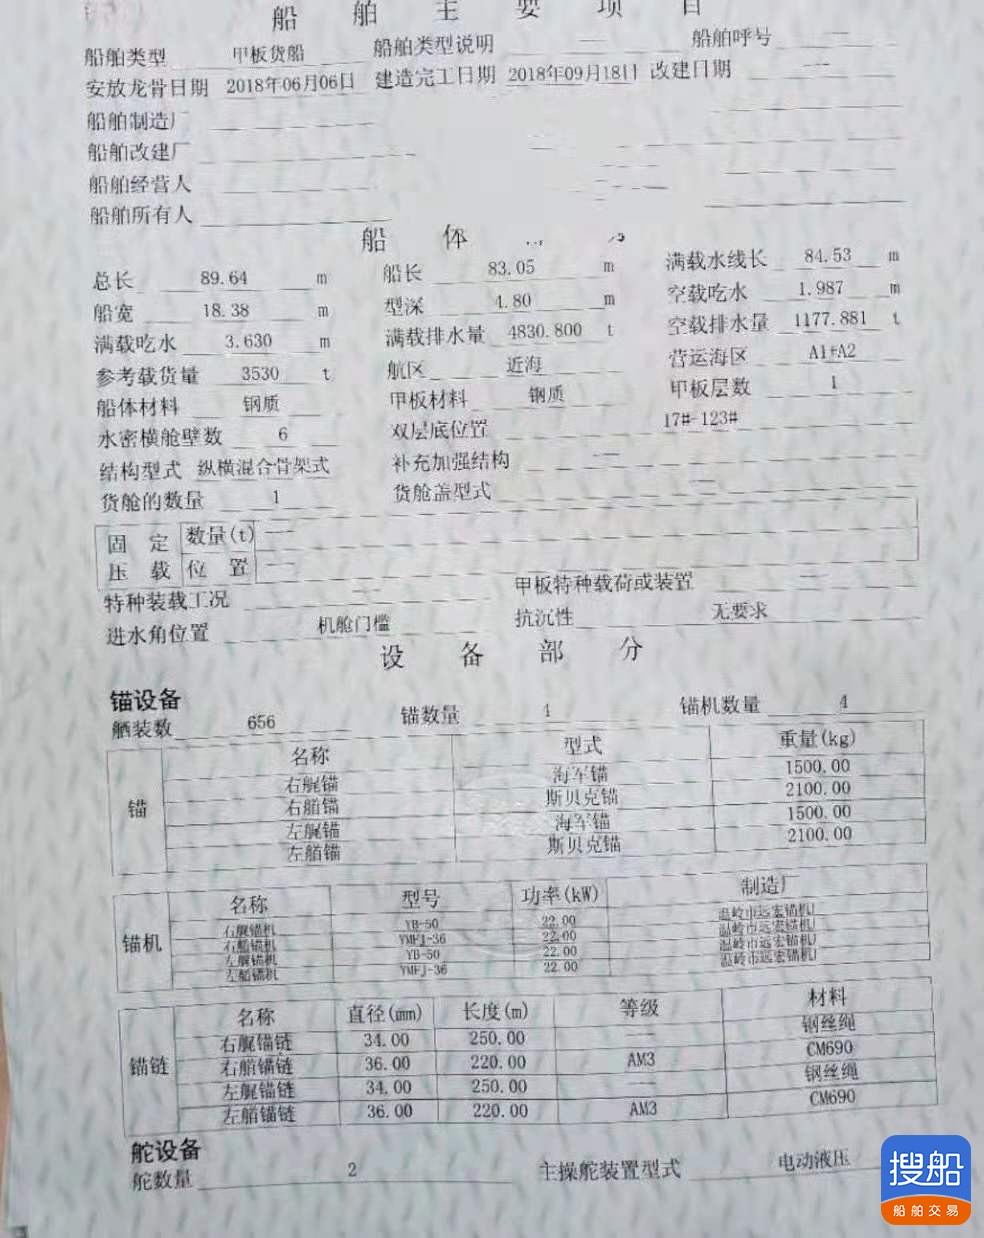 船 舶 主 要 项 目
船舶类型 甲板货船 船舶类型说明 — 船舶呼号 —
安放龙骨日期 2018年06月06日 建造完工日期 2018年09月18日 改建日期 —
船舶制造厂
船舶改建厂
船舶经营人
船舶所有人
船 体
总长 89.64 m 船长 83.05 m 满载水线长 84.53 m
船宽 18.38 m 型深 4.80 m 空载吃水 1.987 m
满载吃水 3.630 m 满载排水量 4830.800 t 空载排水量 1177.881 t
参考载货量 3530 t 航区 近海 营运海区 A1+A2
船体材料 钢质 甲板材料 钢质 甲板层数 1
水密横舱壁数 6 双层底位置 17#-123#
结构型式 纵横混合骨架式 补充加强结构 —
货舱的数量 1 货舱盖型式 —
固 定 数量(t) —
压 载 位 置 —
特种装载工况 — 甲板特种载荷或装置 —
进水角位置 机舱门槛 抗沉性 无要求
设 备 部 分
锚设备
舾装数 656 锚数量 4 锚机数量 4
锚
名称 型式 重量(kg)
右艉锚 海军锚 1500.00
右艏锚 斯贝克锚 2100.00
左艉锚 海军锚 1500.00
左艏锚 斯贝克锚 2100.00
锚机
名称 型号 功率(kW) 制造厂
右艉锚机 YB-50 22.00 温岭市远宏锚机厂
右艏锚机 YMFJ-36 22.00 温岭市远宏锚机厂
左艉锚机 YB-50 22.00 温岭市远宏锚机厂
左艏锚机 YMFJ-36 22.00 温岭市远宏锚机厂
锚链
名称 直径(mm) 长度(m) 等级 材料
右艉锚链 34.00 250.00 — 钢丝绳
右艏锚链 36.00 220.00 AM3 CM690
左艉锚链 34.00 250.00 — 钢丝绳
左艏锚链 36.00 220.00 AM3 CM690
舵设备
舵数量 2 主操舵装置型式 电动液压
搜船
船舶交易